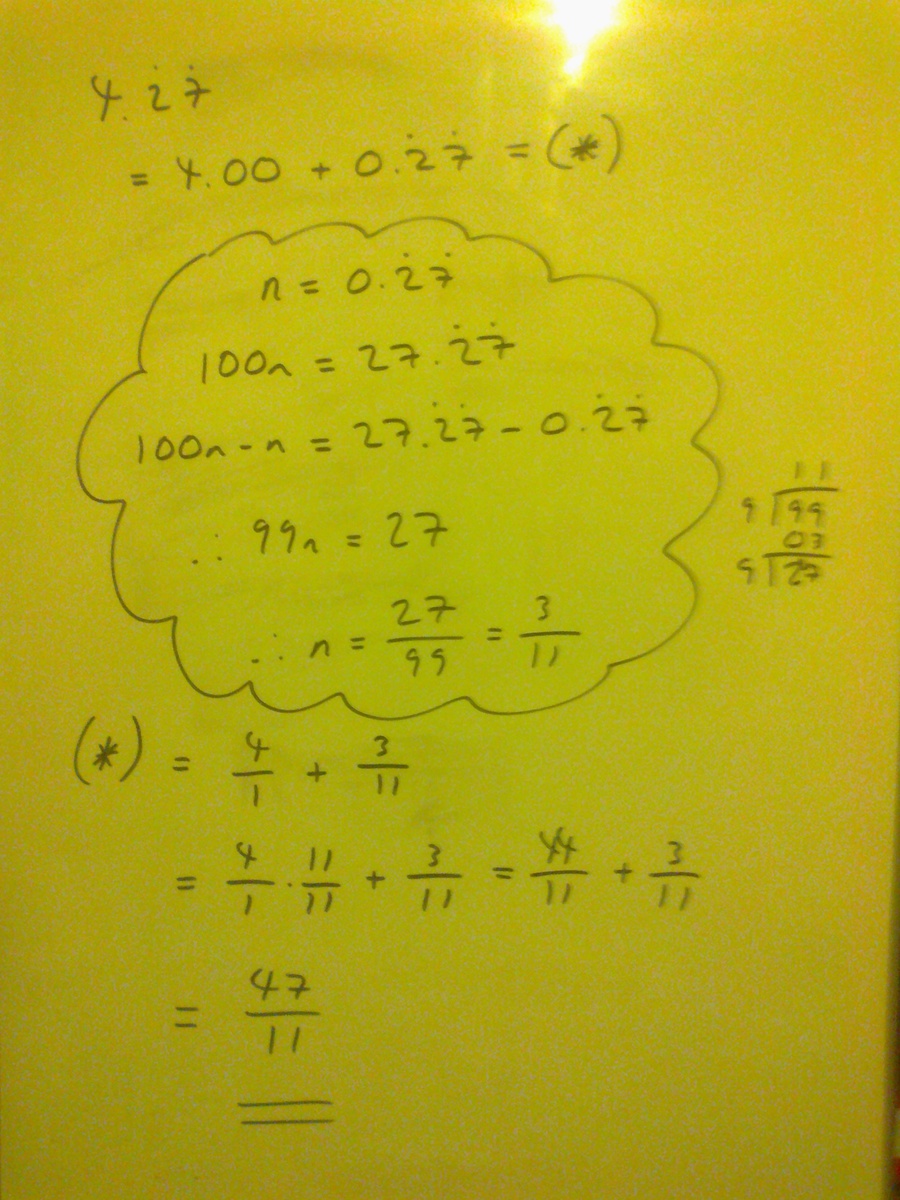 4.2̇7̇
= 4.00 + 0.2̇7̇ = (*)
n = 0.2̇7̇
100n = 27.2̇7̇
100n - n = 27.2̇7̇ - 0.2̇7̇
∴ 99n = 27
∴ n = 27/99 = 3/11
11
9 99
03
9 27
(*) = 4/1 + 3/11
= 4/1 · 11/11 + 3/11 = 44/11 + 3/11
= 47/11